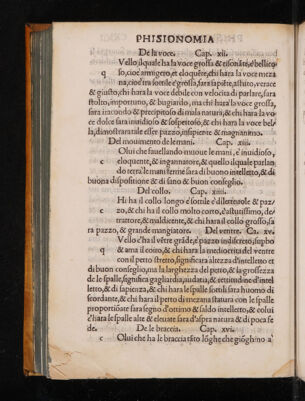 PHISIONOMIA
De la voce. Cap. xii.
Vello, ilquale ha la voce grossa & risonãte, è bellico
q so, cioe armigero, et eloquẽte, chi hara la voce meza
na, cioe tra sottile & grossa, sara sapiẽte, astuto, verace
& giusto, chi hara la voce debile con velocita di parlare, sara
stolto, importuno, & bugiardo, ma chi hara la voce grossa,
sara iracondo & precipitoso di mala natura, & chi hara la vo
ce dolce sara inuidioso & sospetioso, & chi hara la voce bel
la, dimostra tale esser pazzo, insipiente & magnanimo.
Del mouimento de le mani. Cap. xiii.
Olui che fauellando muoue le mani, è inuidioso,
c eloquente, & ingannatore, & quello il quale parlan
do terrà le mani ferme sara di buono intelletto, & di
buona dispositione & di sano & buon conseglio.
Del collo. Cap. xiiii.
Hi ha il collo longo & sottile è diletteuole & paz
c zo, & chi ha il collo molto corto, è astutissimo, de
tratore, & maldicente, & chi hara il collo grosso, sa
ra pazzo, & grande mangiatore. Del ventre. Ca. xv.
Vello c'ha il vẽtre grãde, è pazzo indiscreto, supbo
q & ama il coito, & chi hara la mediocrita del ventre
con il petto stretto, significara altezza d'intelletto et
di buon conseglio, ma la larghezza del petto, & la grossezza
de le spalle, significa gagliardia, audatia, & rettitudine d'intel
letto, & di sapienza, & chi hara le spalle sottili sara huomo di
scordante, & chi hara il petto di mezana statura con le spalle
proportiõate sara segno d'ottimo & saldo intelletto, & colui
c'hara le spalle alte & eleuate sara d'aspra natura & di poca fe
de. De le braccia. Cap. xvi.
c Olui che ha le braccia tãto lõghe che giõghino a'